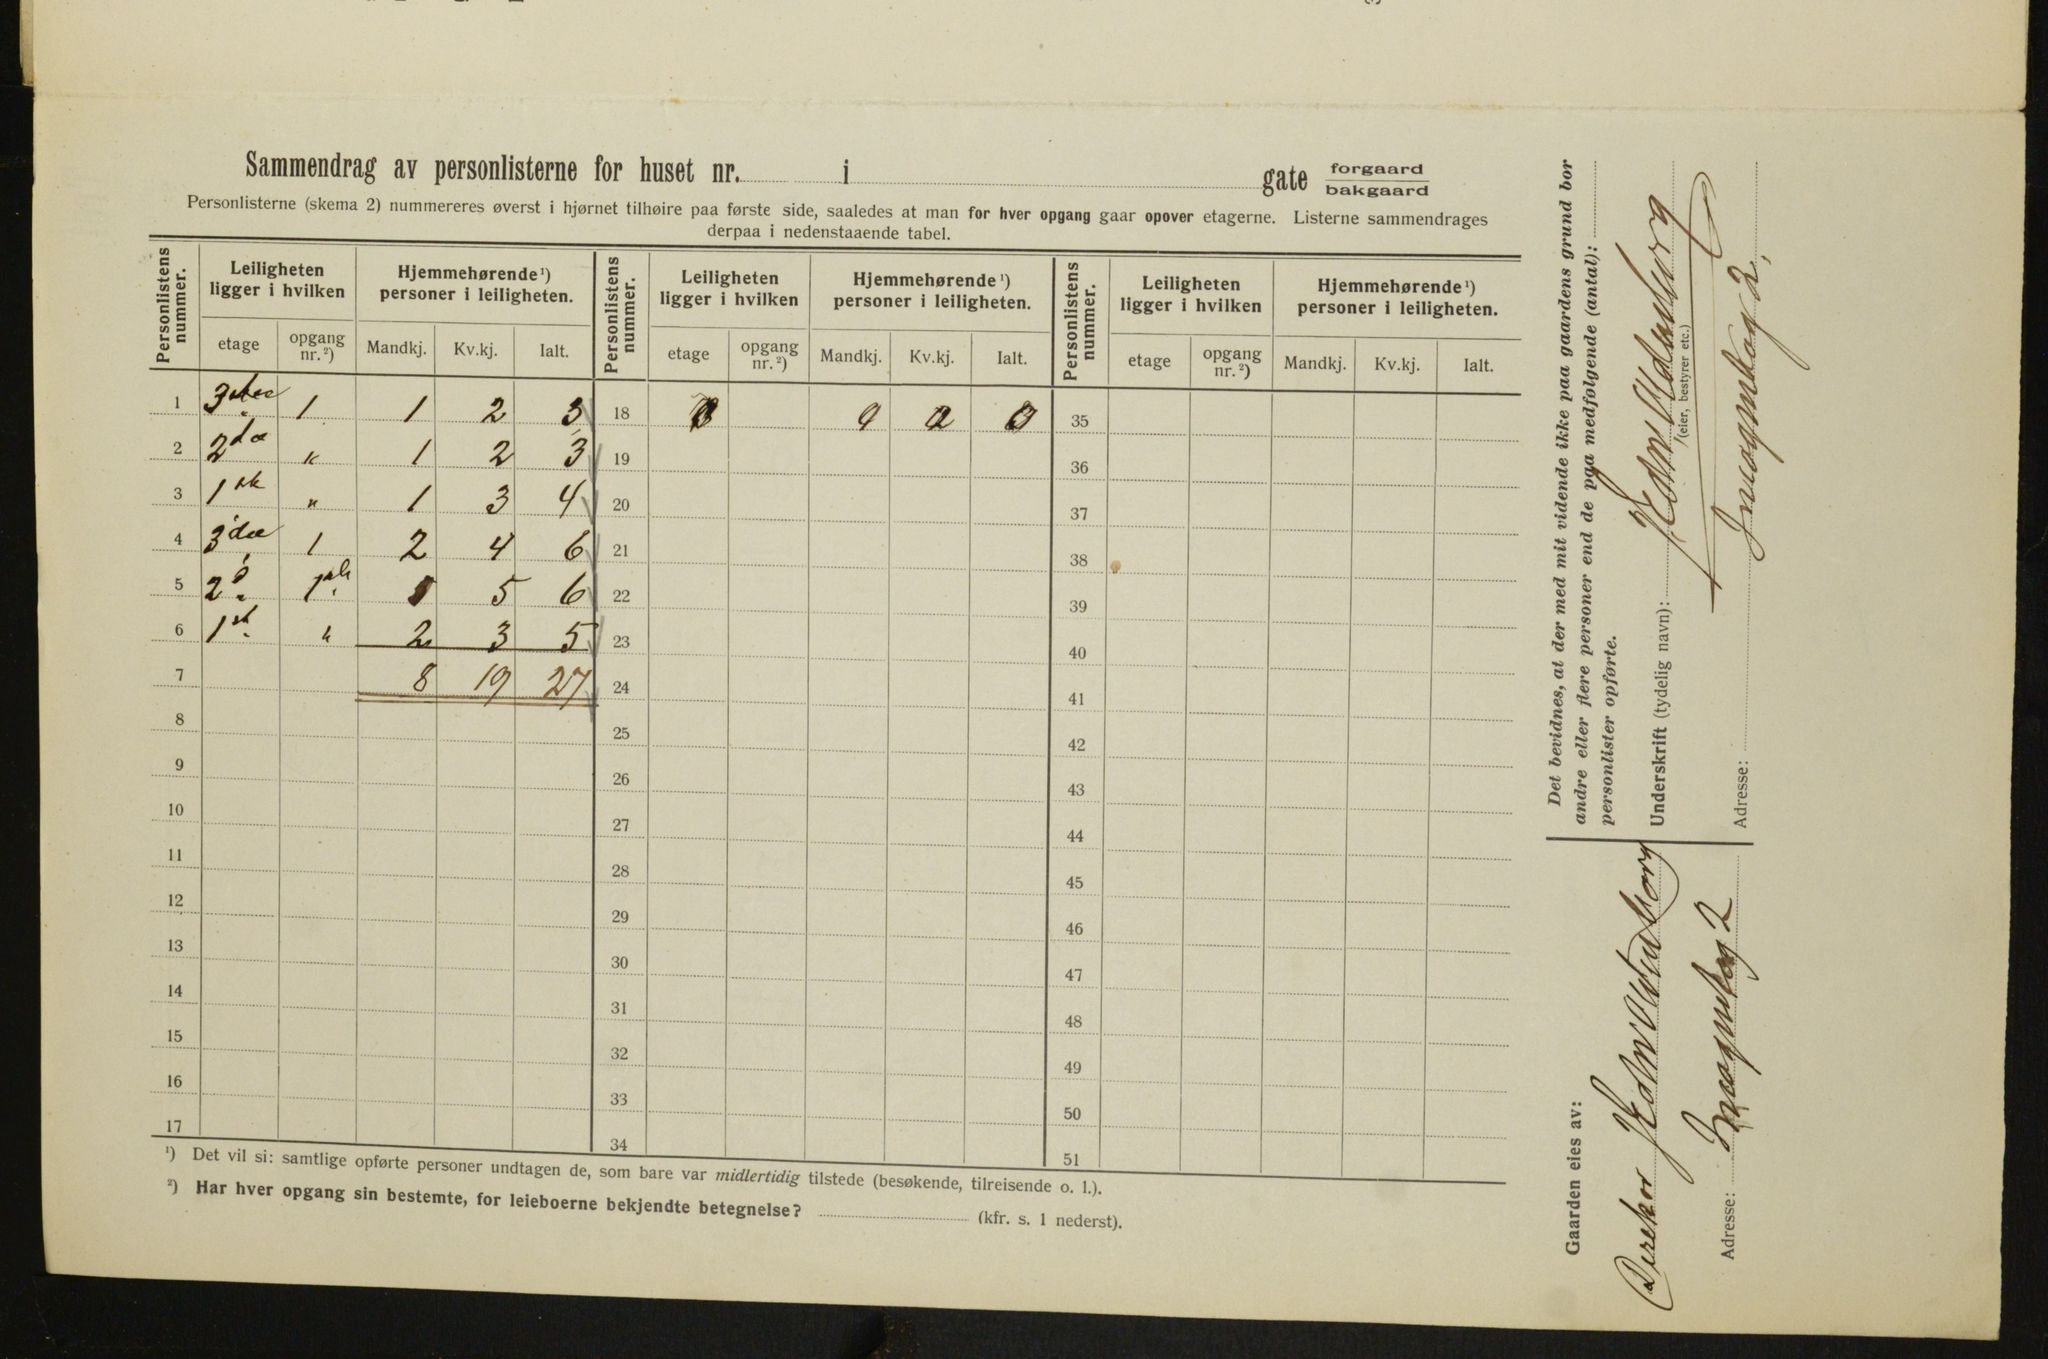 Sammendrag av personlisterne for huset nr. i gate forgaard bakgaard
Personlisterne (skema 2) nummereres øverst i hjørnet tilhøire paa første side, saaledes at man for hver opgang gaar opover etagerne. Listerne sammendrages
derpaa i nedenstaaende tabel.
Personlistens nummer. Leiligheten ligger i hvilken Hjemmehørende ¹) personer i leiligheten. Personlistens nummer. Leiligheten ligger i hvilken Hjemmehørende ¹) personer i leiligheten. Personlistens nummer. Leiligheten ligger i hvilken Hjemmehørende ¹) personer i leiligheten.
etage opgang nr. ²) Mandkj. Kv.kj. Ialt. etage opgang nr. ²) Mandkj. Kv.kj. Ialt. etage opgang nr. ²) Mandkj. Kv.kj. Ialt.
1 1 1 2 3 18 35
2 2 " 1 2 3 19 36
3 1 " 1 3 4 20 37
4 3 1 2 4 6 21 38
5 2 1 1 5 6 22 39
6 1 " 2 3 5 23 40
7 8 19 27 24 41
8 25 42
9 26 43
10 27 44
11 28 45
12 29 46
13 30 47
14 31 48
15 32 49
16 33 50
17 34 51
¹) Det vil si: samtlige opførte personer undtagen de, som bare var midlertidig tilstede (besøkende, tilreisende o. l.).
²) Har hver opgang sin bestemte, for leieboerne bekjendte betegnelse? (kfr. s. 1 nederst).
Det bevidnes, at der med mit vidende ikke paa gaardens grund bor
andre eller flere personer end de paa medfølgende (antal):
personlister opførte.
Underskrift (tydelig navn):
(eier, bestyrer etc.)
Adresse:
Gaarden eies av:
Adresse: